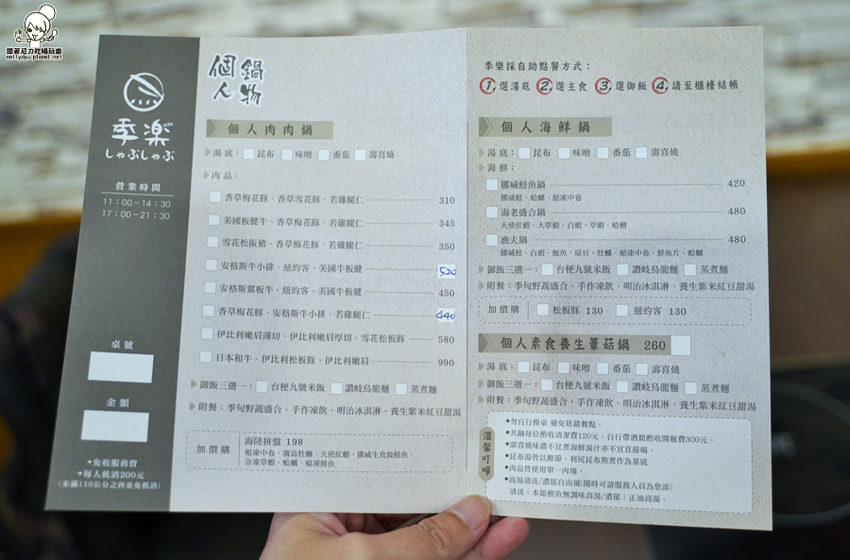 跟著尼力吃喝玩樂
nellydyu.pixnet.net
季楽
しゃぶしゃぶ
營業時間
11:00-14:30
17:00-21:30
桌號
金額
*免收服務費
*每人低消200元
(未滿110公分之孩童免低消)
個人鍋物
個人肉肉鍋
湯底: 昆布 味噌 番茄 壽喜燒
肉品:
香草梅花豚、香草雪花豚、若雞腿仁 310
美國板腱牛、香草梅花豚、若雞腿仁 345
雪花松阪豬、香草梅花豚、若雞腿仁 350
安格斯牛小排、紐約客、美國牛板腱 520
安格斯翼板牛、紐約客、美國牛板腱 450
香草梅花豚、安格斯牛小排、若雞腿仁 440
伊比利嫩肩薄切、伊比利嫩肩厚切、雪花松板豚 580
日本和牛、伊比利松板豚、伊比利嫩肩 990
御飯三選一: 台梗九號米飯 讚岐烏龍麵 蒸煮麵
附餐:季旬野蔬盛合、手作凍飲、明治冰淇淋、養生紫米紅豆甜湯
加價購
海陸拼盤 198
船凍中卷、廣島牡蠣、天使紅蝦、挪威生食級鮭魚、
急凍草蝦、蛤蠣、船凍鮮魚
季樂採自助點餐方式:
1.選湯底 2.選主食 3.選御飯 4.請至櫃檯結帳
個人海鮮鍋
湯底: 昆布 味噌 番茄 壽喜燒
海鮮:
挪威鮭魚鍋 420
挪威鮭、蛤蠣、船凍中卷
海老盛合鍋 480
天使紅蝦、大草蝦、白蝦、草蝦、蛤蜊
漁夫鍋 480
挪威鮭、白蝦、鮑魚、扇貝、牡蠣、船凍中卷、鮮魚片、蛤蠣
御飯三選一: 台梗九號米飯 讚岐烏龍麵 蒸煮麵
附餐:季旬野蔬盛合、手作凍飲、明治冰淇淋、養生紫米紅豆甜湯
加價購 松板豚 130 紐約客 130
個人素食養生蕈菇鍋 260
湯底: 昆布 味噌 番茄 壽喜燒
御飯三選一: 台梗九號米飯 讚岐烏龍麵 蒸煮麵
附餐:季旬野蔬盛合、手作凍飲、明治冰淇淋、養生紫米紅豆甜湯
溫馨叮嚀
•勿自行換桌 避免送錯餐點。
•共鍋每位酌收清潔費120元、自行帶酒類酌收開瓶費300元。
•壽喜燒味濃不宜煮海鮮湯汁亦不宜直接喝。
•昆布湯皆以鰹節、利尻昆布熬煮作為基底
•肉品皆使用單一肉塊。
•高湯清淡/濃郁自由風(隨時可請服務人員為您添)
清淡:本節鰹魚無調味高湯/濃郁:正油高湯。